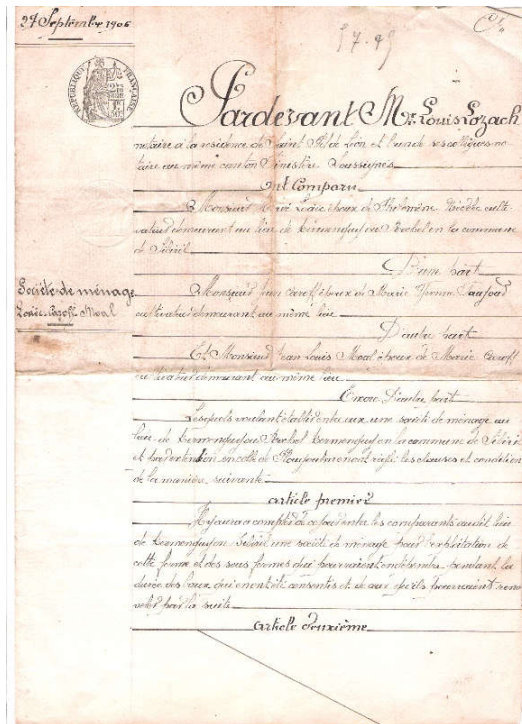 27 Septembre 1906
RÉPUBLIQUE FRANÇAISE
Pardevant Me Louis Lozach
notaire à la résidence de Saint Pol de Léon et l'un de ses collègues no-
taire au même canton Finistère Soussignés
Ont Comparu
Monsieur Loaëc époux de Philomène culti-
vateur demeurant au lieu de en la commune
de Sibiril
D'une part
Société de ménage
Loaëc, Caroff, Moal
Monsieur Jean Caroff époux de Marie Yvonne
cultivateur demeurant au même lieu
D'autre part
Et Monsieur Jean Louis Moal époux de Marie Caroff
cultivateur demeurant au même lieu
Encore d'autre part
Lesquels voulant établir entre eux une société de ménage au
lieu de en la commune de Sibiril
et par extention en celle de ont réglé les clauses et condition
de la manière suivante
article premier
Il y aura à compter de ce jour entre les comparants audit lieu
de Sibiril une société de ménage pour l'exploitation de
cette ferme et des sous fermes qui pourraient en dépendre pendant la
durée des baux qui en ont été consentis et de ceux qu'ils pourraient renou
veler par la suite
article deuxième